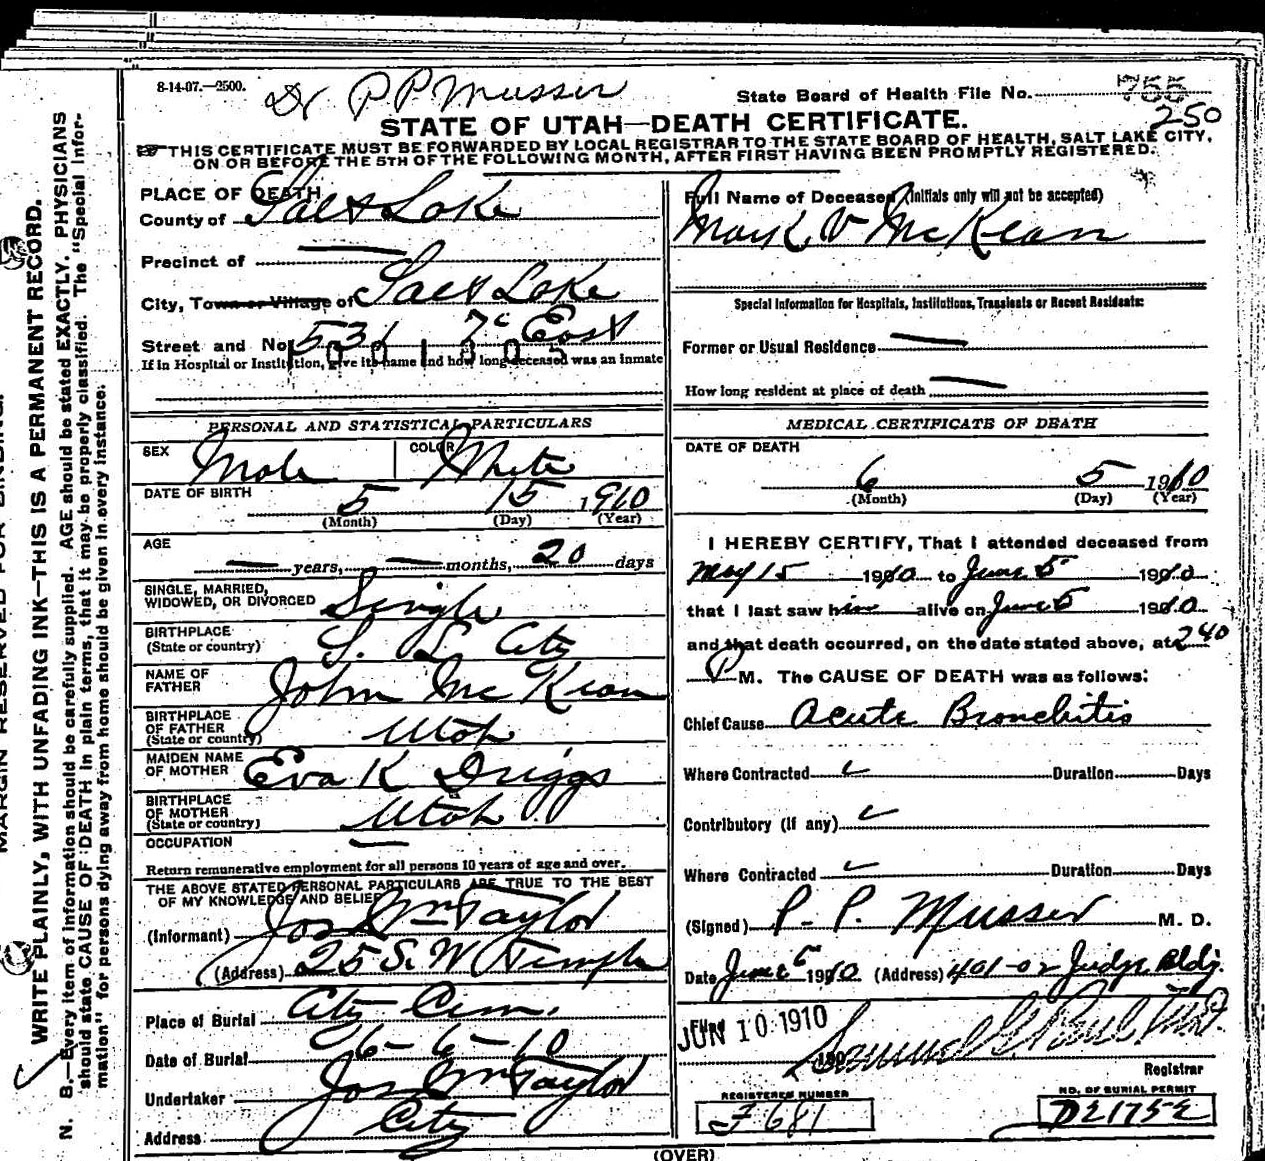 8-14-07.—2500.
Dr P P Musser
State Board of Health File No. 755
250
STATE OF UTAH—DEATH CERTIFICATE.
THIS CERTIFICATE MUST BE FORWARDED BY LOCAL REGISTRAR TO THE STATE BOARD OF HEALTH, SALT LAKE CITY,
ON OR BEFORE THE 5TH OF THE FOLLOWING MONTH, AFTER FIRST HAVING BEEN PROMPTLY REGISTERED.
PLACE OF DEATH
County of Salt Lake
Precinct of —
City, Town or Village of Salt Lake
Street and No. 531 7th East
1001305
If in Hospital or Institution, give its name and how long deceased was an inmate
PERSONAL AND STATISTICAL PARTICULARS
SEX Male COLOR White
DATE OF BIRTH 5 15 1910
(Month) (Day) (Year)
AGE — years, — months, 20 days
SINGLE, MARRIED,
WIDOWED, OR DIVORCED Single
BIRTHPLACE
(State or country) S. L. City
NAME OF
FATHER John McKean
BIRTHPLACE
OF FATHER
(State or country) Utah
MAIDEN NAME
OF MOTHER Eva K Driggs
BIRTHPLACE
OF MOTHER
(State or country) Utah
OCCUPATION —
Return remunerative employment for all persons 10 years of age and over.
THE ABOVE STATED PERSONAL PARTICULARS ARE TRUE TO THE BEST
OF MY KNOWLEDGE AND BELIEF
(Informant) Jos Wm Taylor
(Address) 25 S. W Temple
Place of Burial City Cem.
Date of Burial 6-6-10
Undertaker Jos Wm Taylor
Address City
Full Name of Deceased (initials only will not be accepted)
Mark V McKean
Special Information for Hospitals, Institutions, Transients or Recent Residents:
Former or Usual Residence —
How long resident at place of death —
MEDICAL CERTIFICATE OF DEATH
DATE OF DEATH
6 5 1910
(Month) (Day) (Year)
I HEREBY CERTIFY, That I attended deceased from
May 15 1910 to June 5 1910
that I last saw him alive on June 5 1910
and that death occurred, on the date stated above, at 2 40
P M. The CAUSE OF DEATH was as follows:
Chief Cause Acute Bronchitis
Where Contracted Duration Days
Contributory (if any)
Where Contracted Duration Days
(Signed) P. P. Musser M. D.
Date June 6 1910 (Address) 401-02 Judge Bldg.
Filed
JUN 10 1910
190
Samuel G Paul
Registrar
REGISTERED NUMBER
F 681
NO. OF BURIAL PERMIT
D21752
(OVER)
MARGIN RESERVED FOR BINDING.
WRITE PLAINLY, WITH UNFADING INK—THIS IS A PERMANENT RECORD.
N. B.—Every item of information should be carefully supplied. AGE should be stated EXACTLY. PHYSICIANS
should state CAUSE OF DEATH in plain terms, that it may be properly classified. The "Special Infor-
mation" for persons dying away from home should be given in every instance.